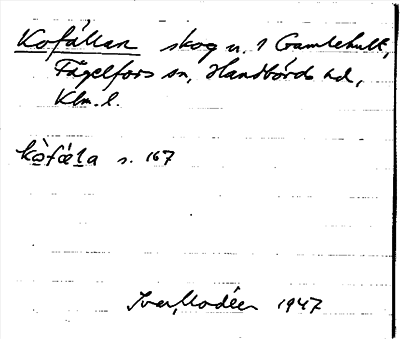 Kofållan skog u. 1 Gamlehult,
Fågelfors sn, Handbörds hd,
Klm. l.
kòfǽla s. 167
Ivar Modéer 1947